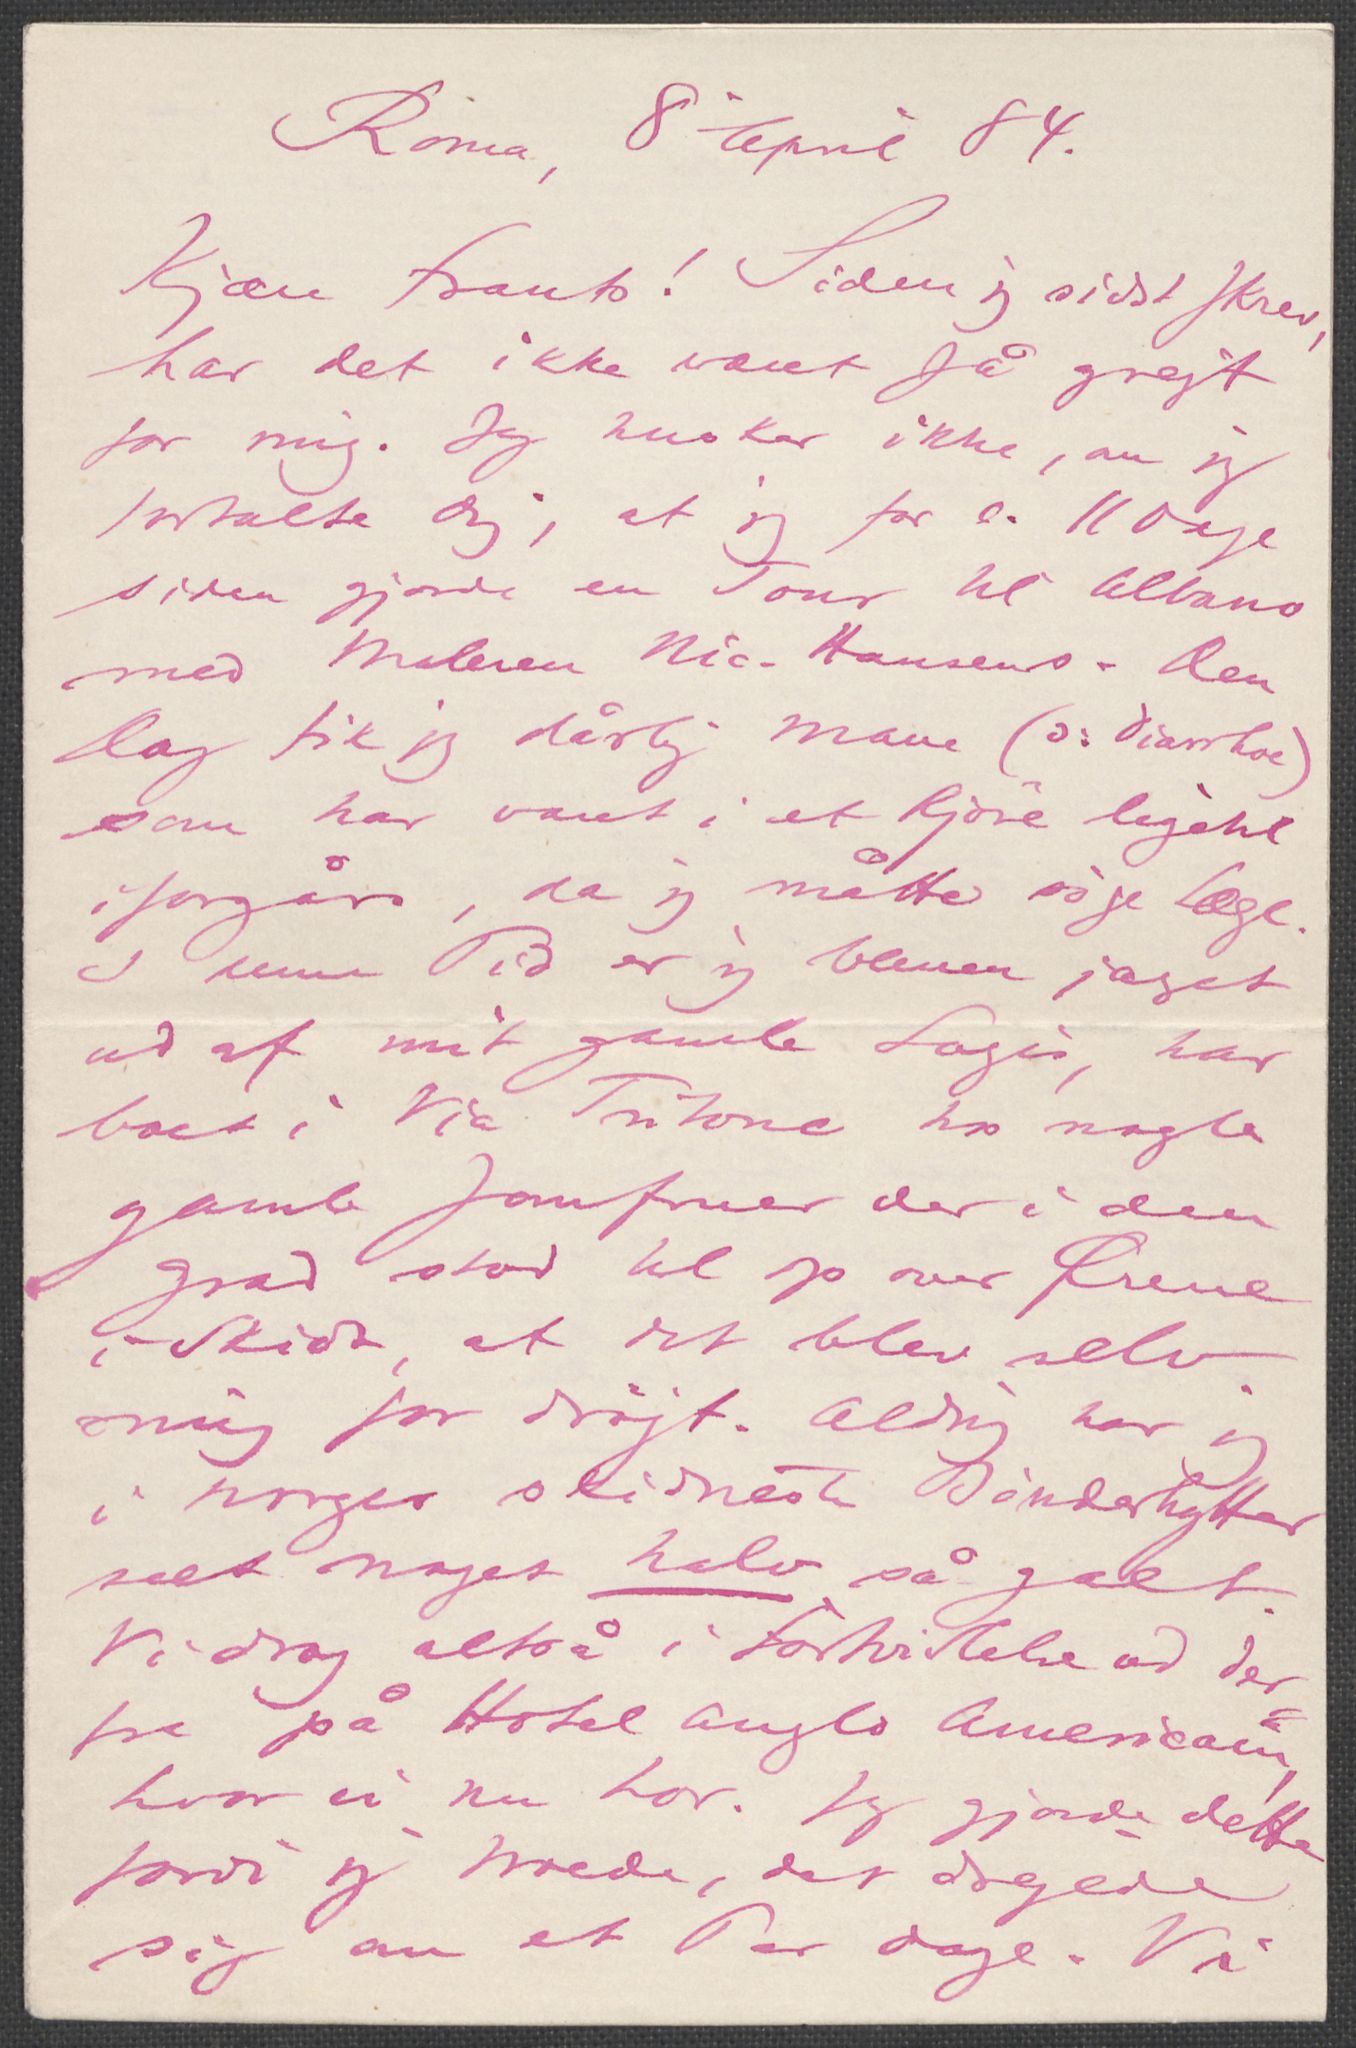 Roma, 8 April 84.
Kjære Frants! Siden jg sidst skrev,
har det ikke været så grejt
for mig. Jeg husker ikke, om jg
fortalte dig, at jg for c. 11 Dage
siden gjorde en Tour til Albano
med Maleren Nic. Hansens. Den
Dag fik jg dårlig Mave (ɔ: Diarrhoe)
som har varet i et Kjöre ligetil
iforgårs, da jg måtte söge Læge.
I denne Tid er jg bleven jaget
ud af mit gamle Logis, har
boet i Via Tritone hos nogle
gamle Jomfruer der i den
Grad stod til op over Ørene
i Skidt, at det blev selv
mig for dröjt. Aldrig har jg
i Norges skidneste Bönderhytter
seet noget halv så galt.
Vi drog altså i Fortvivlelse ud der-
fra på Hotel Anglo Americain,
hvor vi nu bor. Jeg gjorde dette
fordi jg troede, det drejede
sig om et Par Dage. Vi